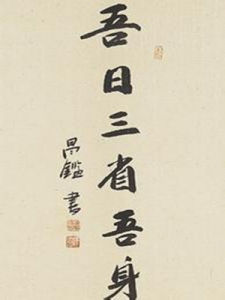 吾日三省吾身
昌鑑書